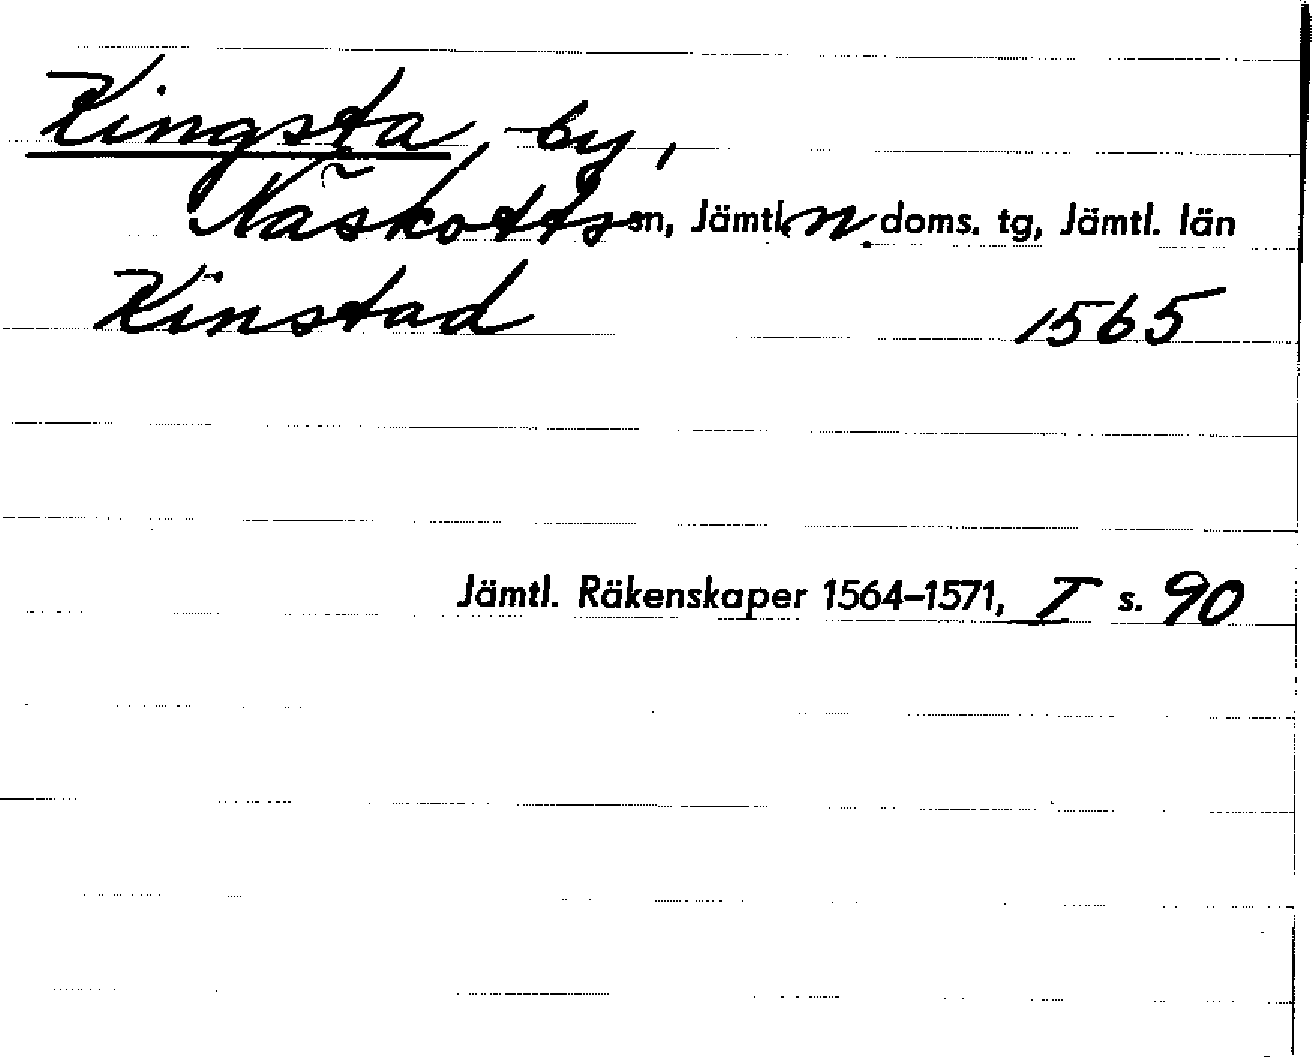 Kingsta, by,
Näskotts sn, Jämtl. n. doms. tg, Jämtl. län
Kinstad 1565
Jämtl. Räkenskaper 1564–1571, I s. 90